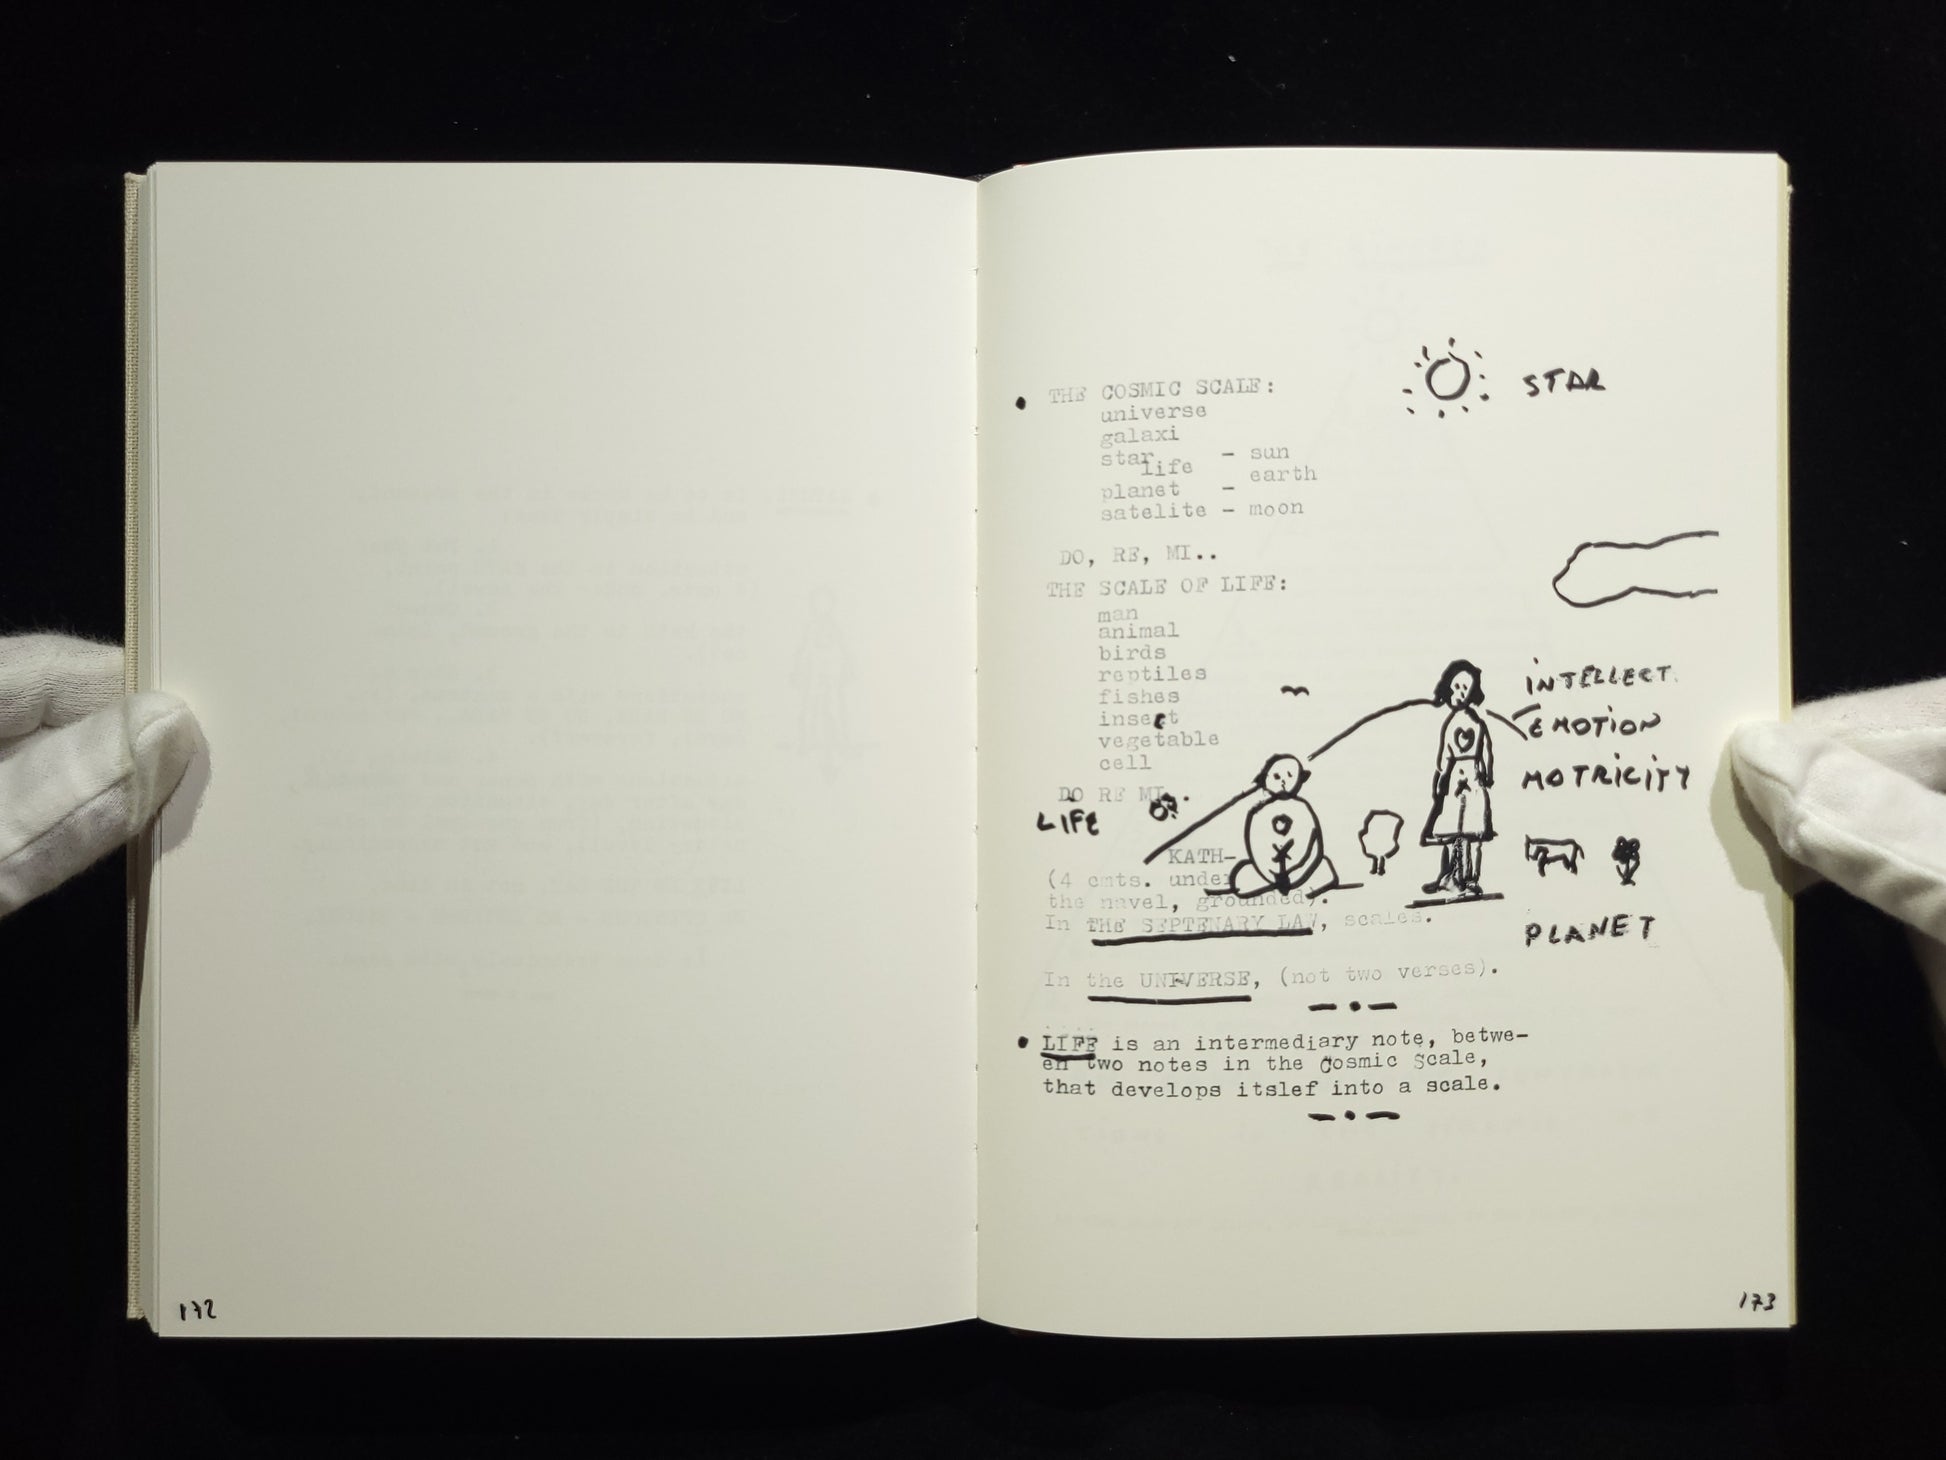 THE COSMIC SCALE:
universe
galaxi
star - sun
life earth
planet -
satelite - moon
DO, RE, MI..
THE SCALE OF LIFE:
man
animal
birds
reptiles
fishes
insect
vegetable
cell
DO RE MI..
LIFE
KATH-
(4 cmts. under
the navel, grounded).
In THE SEPTENARY LAW, scales.
In the UNIVERSE, (not two verses).
LIFE is an intermediary note, betwe-
en two notes in the Cosmic Scale,
that develops itslef into a scale.
STAR
INTELLECT.
EMOTION
MOTRICITY
PLANET
172
173